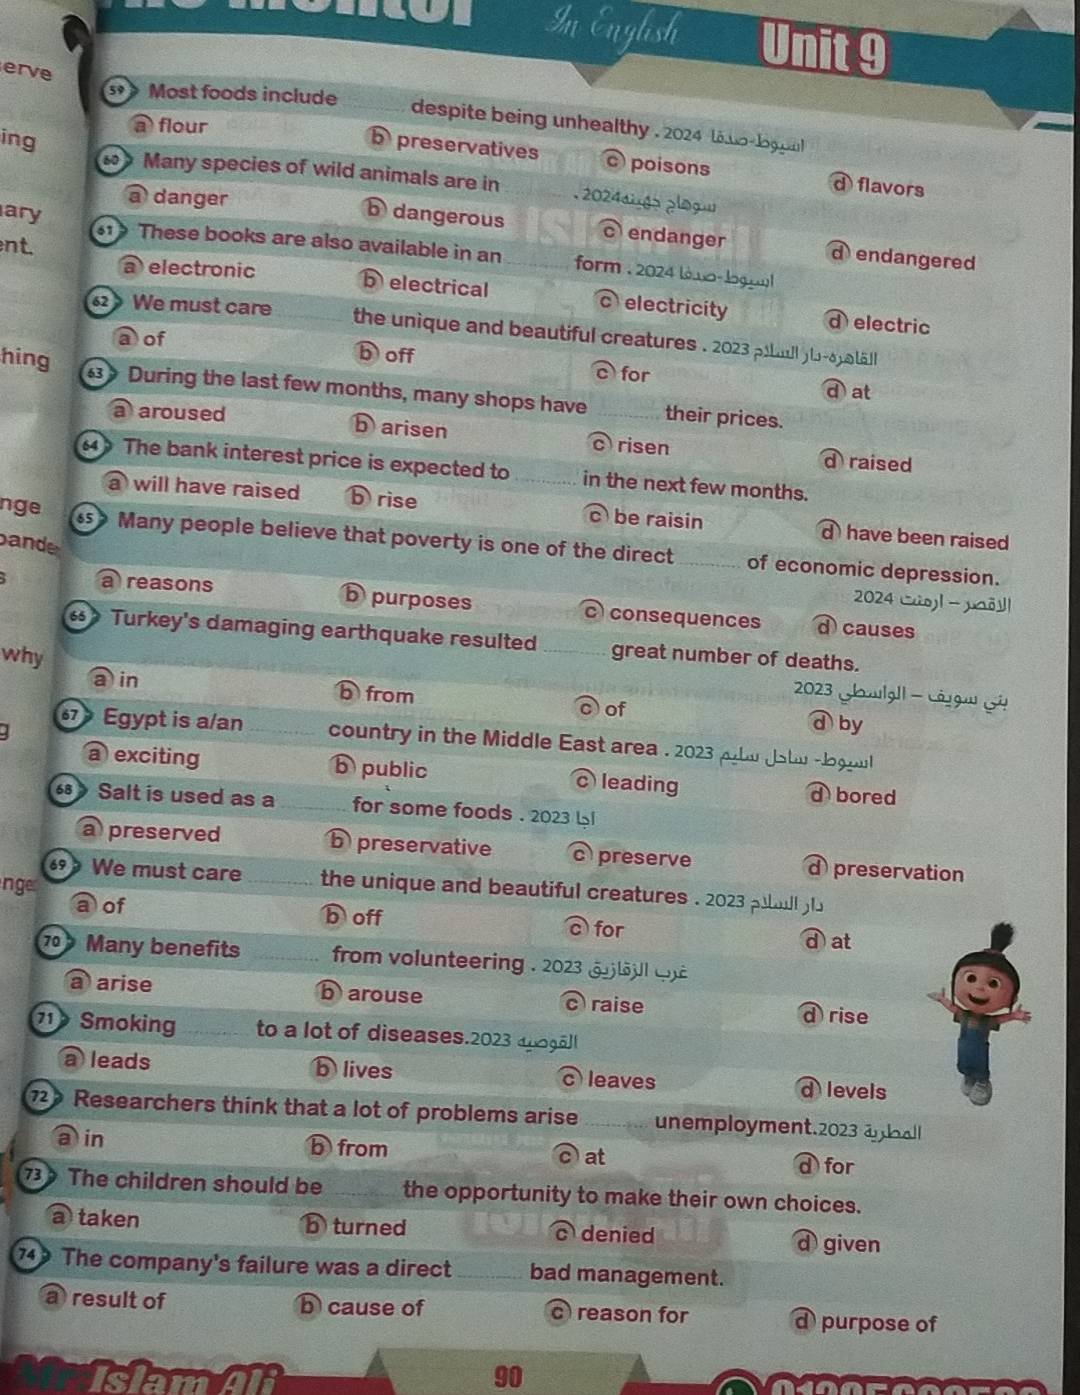 In English
Unit 9
59 Most foods include ......... despite being unhealthy . 2024 اسيوط-صدفا
a flour b preservatives c poisons d flavors
60 Many species of wild animals are in ......... . 2024 سوهاج جهينة
a danger b dangerous c endanger d endangered
61 These books are also available in an ......... form . 2024 اسيوط-صدفا
a electronic b electrical c electricity d electric
62 We must care ......... the unique and beautiful creatures . 2023 القاهرة-دار السلام
a of b off c for d at
63 During the last few months, many shops have ......... their prices.
a aroused b arisen c risen d raised
64 The bank interest price is expected to ......... in the next few months.
a will have raised b rise c be raisin d have been raised
65 Many people believe that poverty is one of the direct ......... of economic depression.
الاقصر – ارمنت 2024
a reasons b purposes c consequences d causes
66 Turkey's damaging earthquake resulted ......... great number of deaths.
بني سويف – الواسطي 2023
a in b from c of d by
67 Egypt is a/an ......... country in the Middle East area . 2023 اسيوط- ساحل سليم
a exciting b public c leading d bored
68 Salt is used as a ......... for some foods . 2023 اجا
a preserved b preservative c preserve d preservation
69 We must care ......... the unique and beautiful creatures . 2023 دار السلام
a of b off c for d at
70 Many benefits ......... from volunteering . 2023 غرب الزقازيق
a arise b arouse c raise d rise
71 Smoking ......... to a lot of diseases.2023 القوصية
a leads b lives c leaves d levels
72 Researchers think that a lot of problems arise ......... unemployment.2023 المطرية
a in b from c at d for
73 The children should be ......... the opportunity to make their own choices.
a taken b turned c denied d given
74 The company's failure was a direct ......... bad management.
a result of b cause of c reason for d purpose of
Mr Islam Ali
90
erve
ing
ary
ent.
hing
nge
why